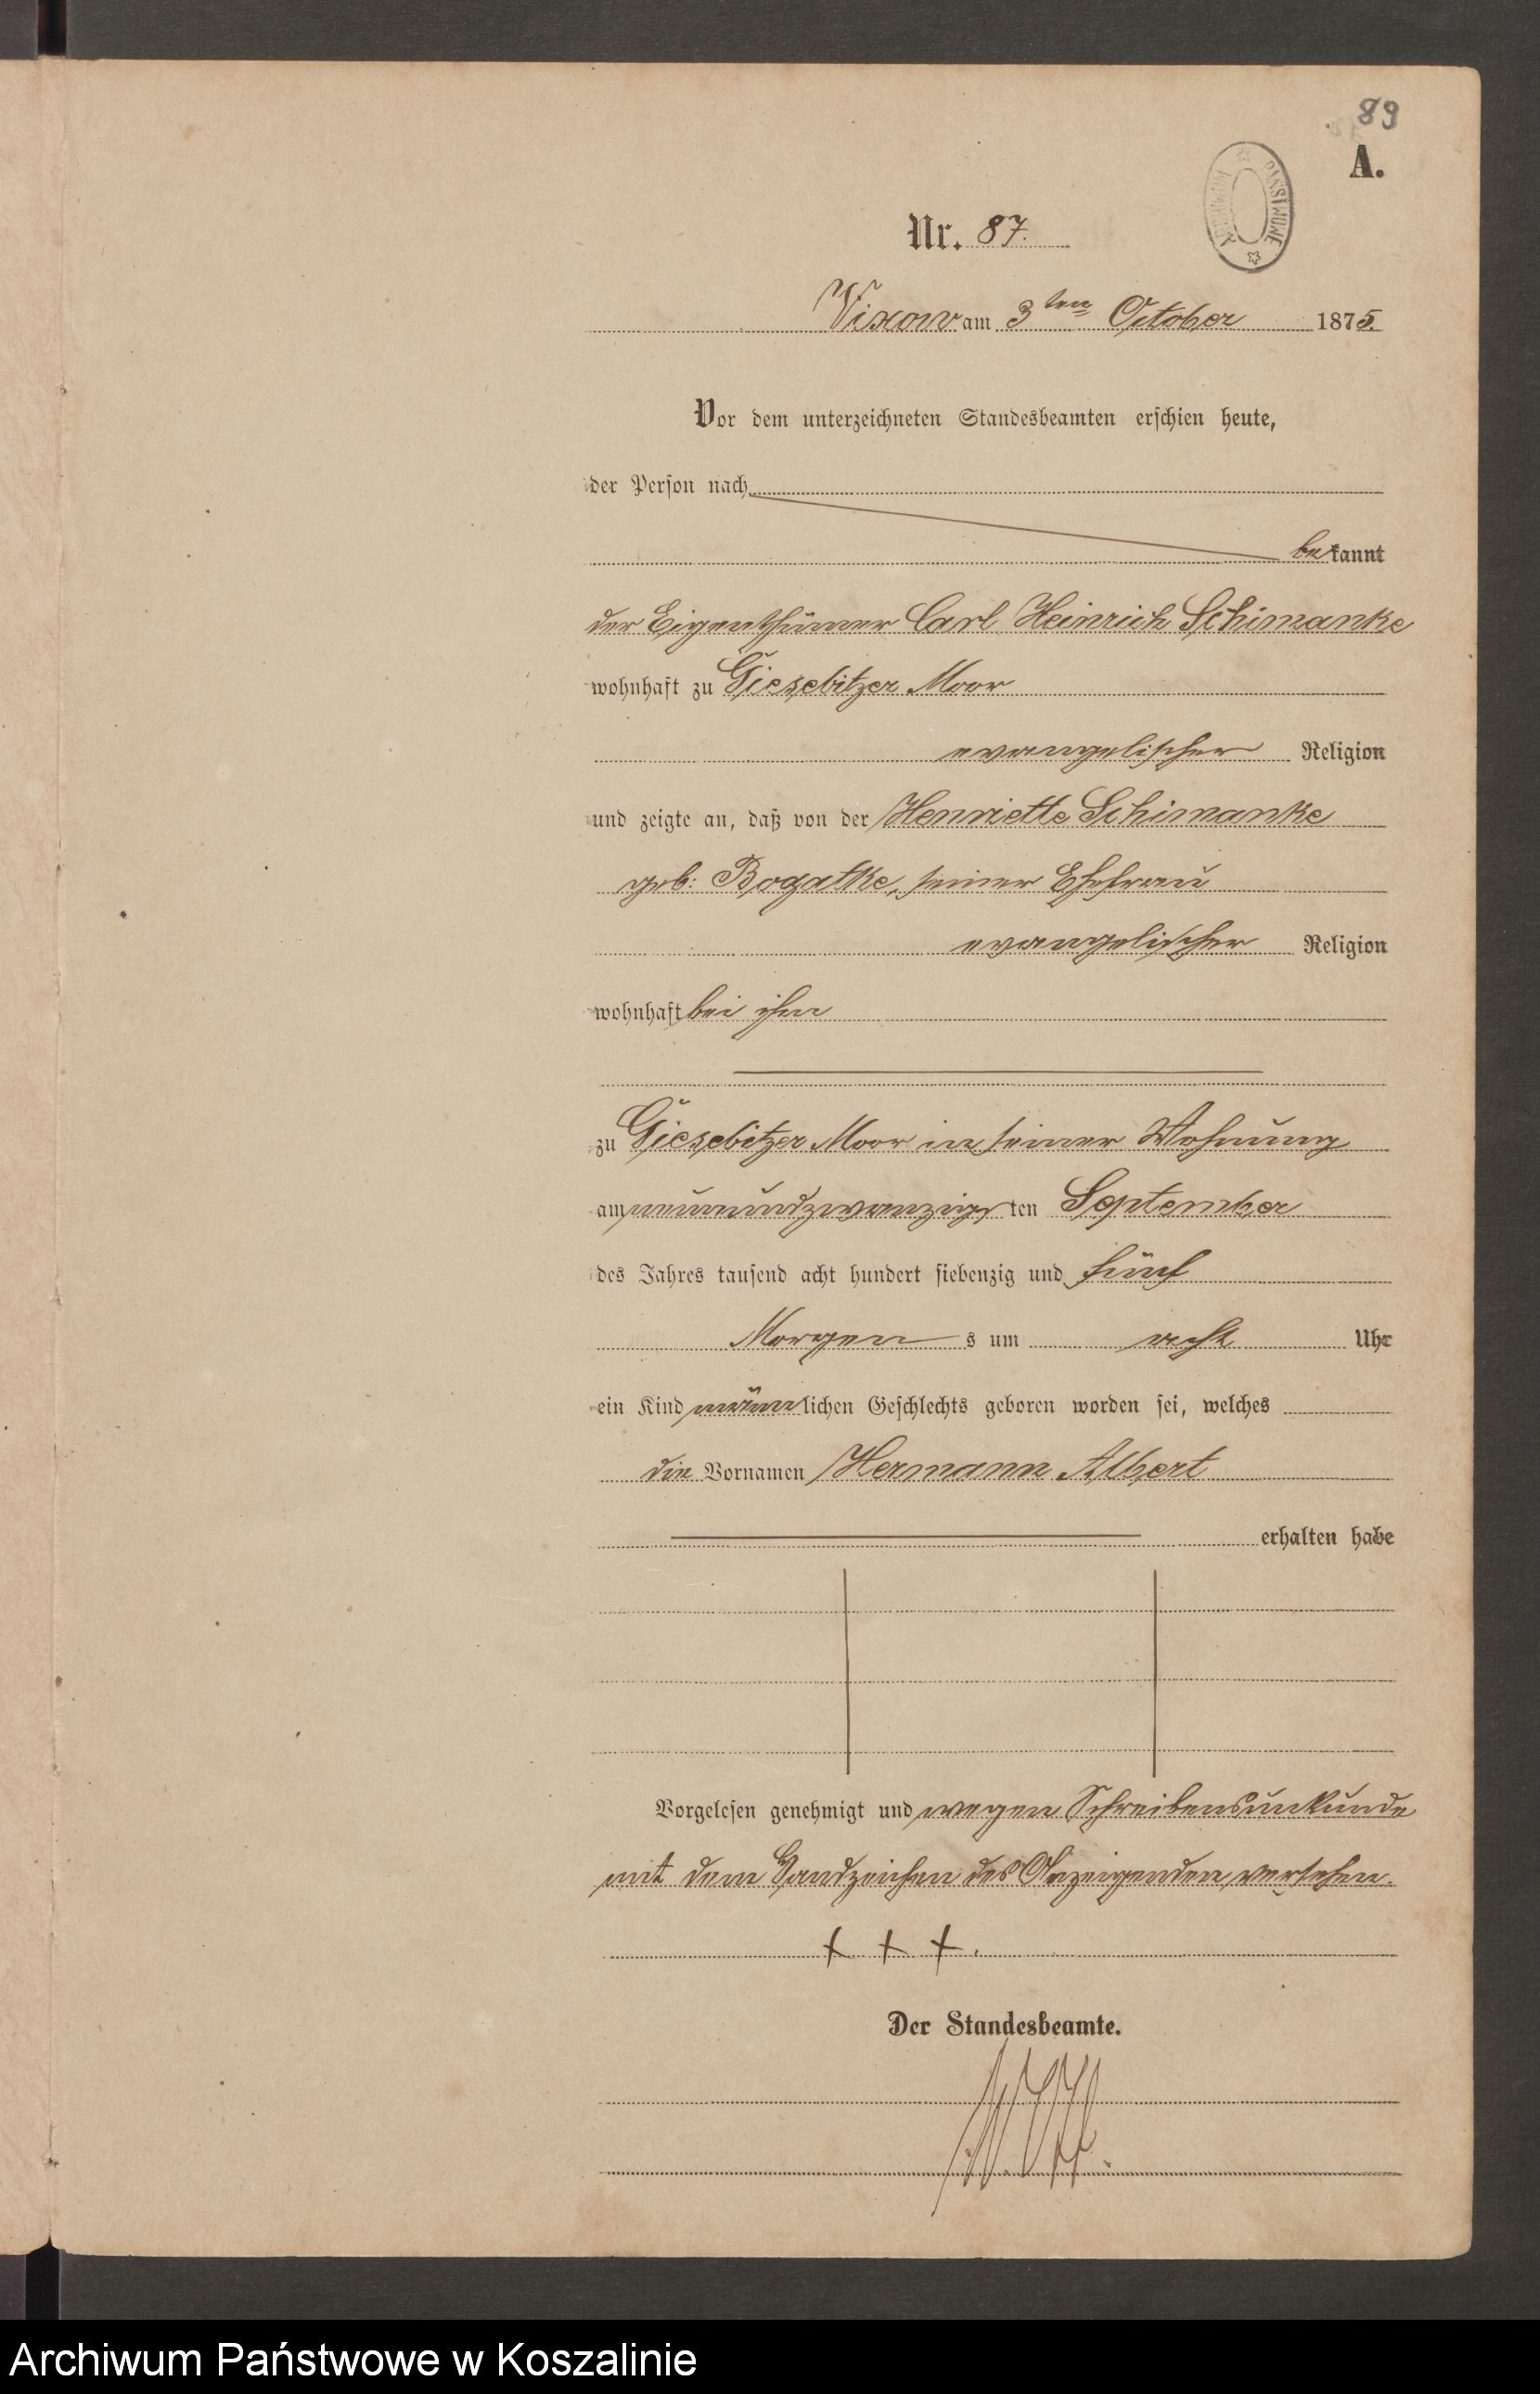 89
A.
ARCHIWUM PAŃSTWOWE
Nr. 87.
Vixow am 3ten October 1875.
Vor dem unterzeichneten Standesbeamten erschien heute,
der Person nach
bekannt
der Eigenthümer Carl Heinrich Schimanke
wohnhaft zu Giesebitzer Moor
evangelischer Religion
und zeigte an, daß von der Henriette Schimanke
geb: Bogatke, seiner Ehefrau
evangelischer Religion
wohnhaft bei ihm
zu Giesebitzer Moor in seiner Wohnung
am neunundzwanzigsten September
des Jahres tausend acht hundert siebenzig und fünf
Morgens um acht Uhr
ein Kind männlichen Geschlechts geboren worden sei, welches
die Vornamen Hermann Albert
erhalten habe
Vorgelesen genehmigt und wegen Schreibensunkunde
mit dem Handzeichen des Anzeigenden versehen.
+ + +.
Der Standesbeamte.
Archiwum Państwowe w Koszalinie